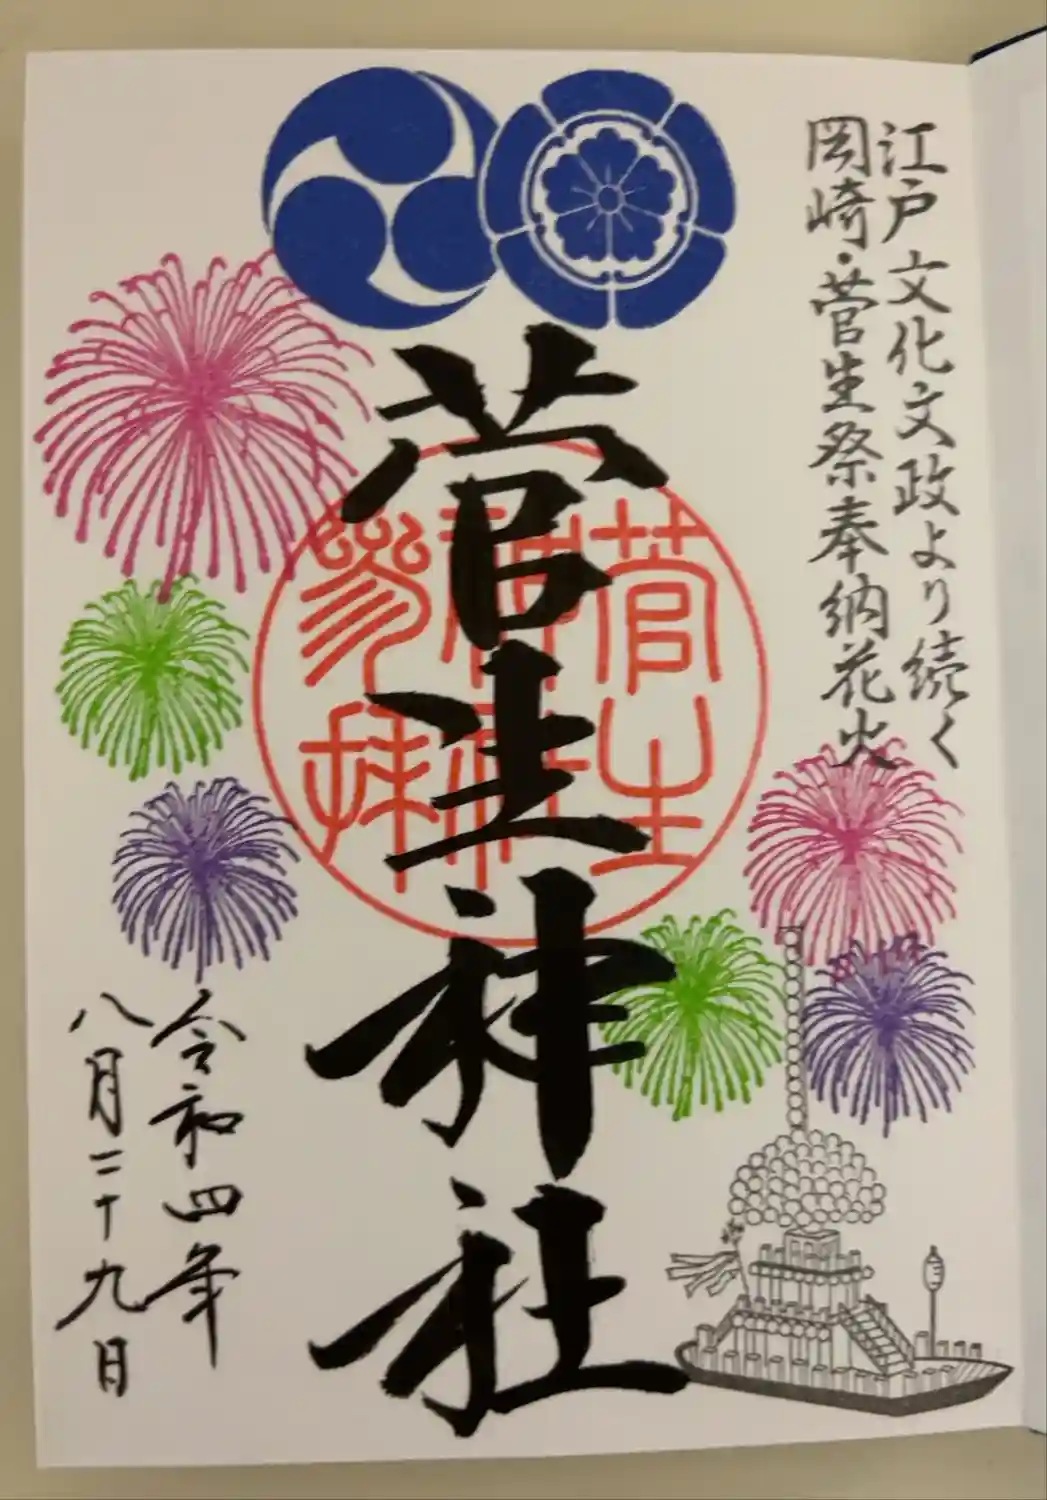 江戸文化文政より続く
岡崎・菅生祭奉納花火
菅生神社
菅生
神社
参拝
令和四年
八月二十九日